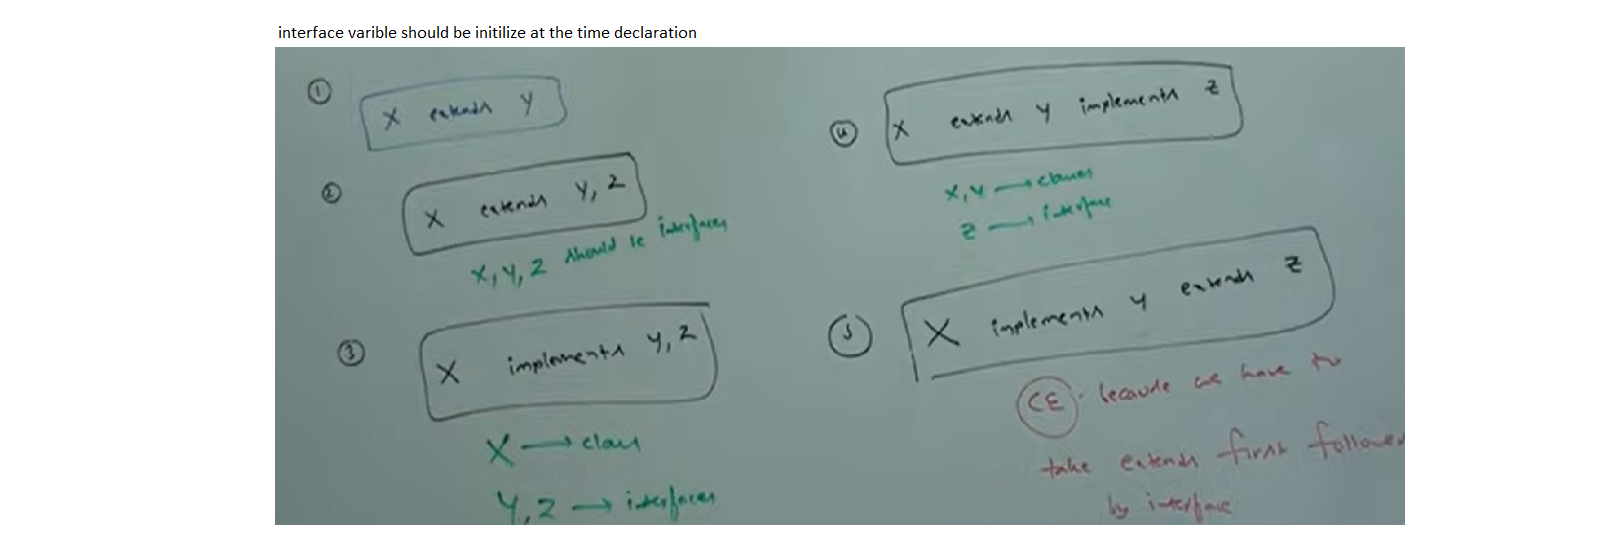 interface varible should be initilize at the time declaration
① X extends Y
② X extends Y, Z
X, Y, Z should be interfaces
③ X implements Y, Z
X → class
Y, Z → interfaces
④ X extends Y implements Z
X, Y → classes
Z → interface
⑤ X implements Y extends Z
CE: because we have to
take extends first followed
by interface